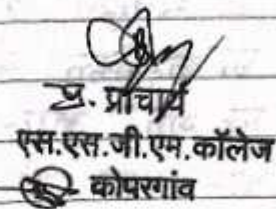 प्र. प्राचार्य
एस.एस.जी.एम.कॉलेज
कोपरगांव